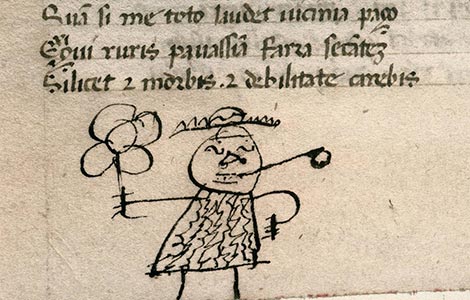 Quā si me toto laudet uicinia pago
Equi ruris pauassīa farra secātez
Silicet ⁊ morbis . ⁊ debilitate carebis